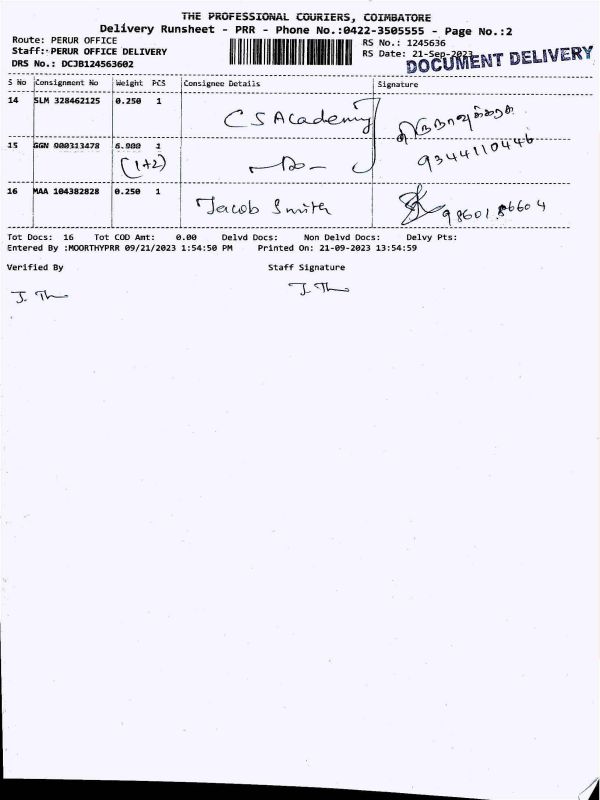 THE PROFESSIONAL COURIERS, COIMBATORE
Delivery Runsheet - PRR - Phone No.:0422-3505555 - Page No.:2
Route: PERUR OFFICE
RS No.: 1245636
Staff: PERUR OFFICE DELIVERY
RS Date: 21-Sep-2023
DOCUMENT DELIVERY
DRS No.: DCJB124563602
S No Consignment No Weight PCS Consignee Details Signature
14 SLM 328462125 0.250 1 CS Academy திருநாவுக்கரசு
9344110446
15 GGN 900313478 6.900 1
(1+2) —Do—
16 MAA 104382828 0.250 1 Jacob Smith 9860186604
Tot Docs: 16 Tot COD Amt: 0.00 Delvd Docs: Non Delvd Docs: Delvy Pts:
Entered By :MOORTHYPRR 09/21/2023 1:54:50 PM Printed On: 21-09-2023 13:54:59
Verified By Staff Signature